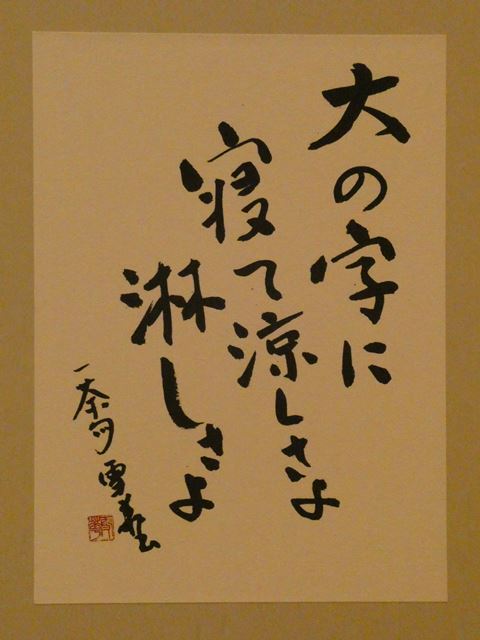 大の字に
寝て涼しさよ
淋しさよ
一茶句